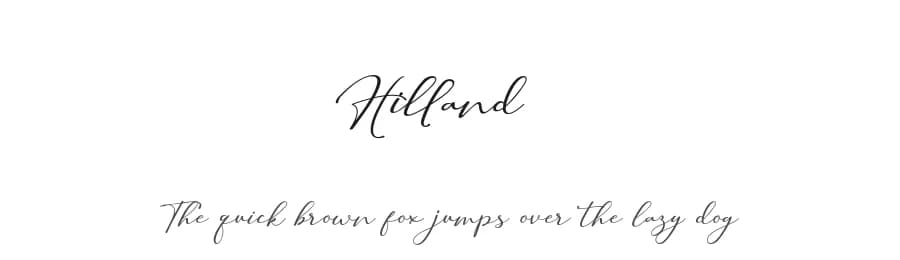 Hilland
The quick brown fox jumps over the lazy dog